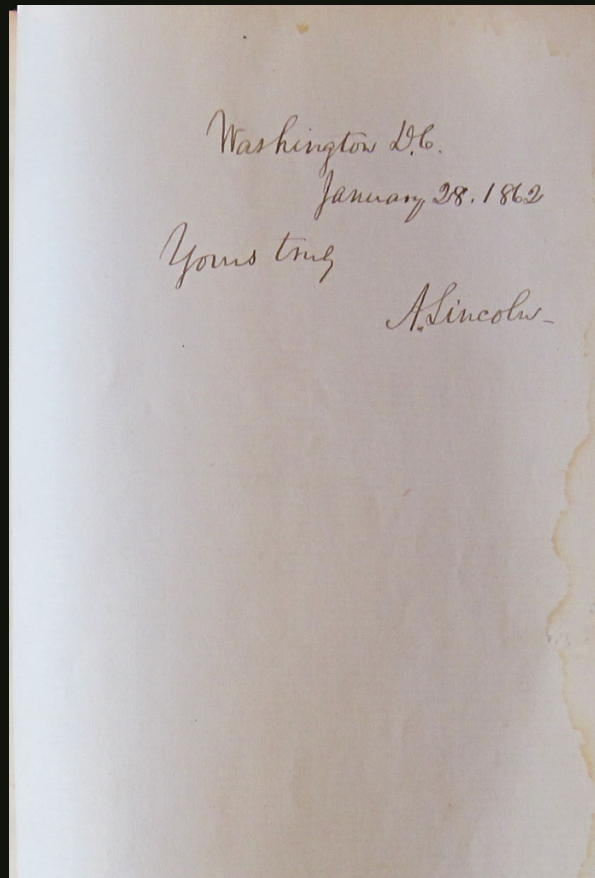 Washington D.C.
January 28. 1862
Yours truly
A. Lincoln